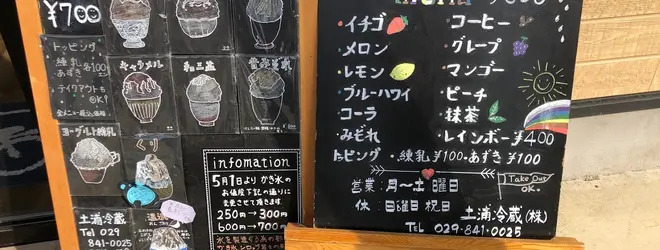 ¥700
トッピング
練乳 各100
あずき
テイクアウトも
OK!
キャラメル
和三盆
ヨーグルト練乳
くり
土浦冷蔵
Tel 029
841-0025
infomation
5月1日より かき氷の
お値段下記の通りに
変更させて頂きます
250円→300円
600円→700円
・イチゴ
・メロン
・レモン
・ブルーハワイ
・コーラ
・みぞれ
・コーヒー
・グレープ
・マンゴー
・ピーチ
・抹茶
・レインボー¥400
トッピング・練乳¥100・あずき¥100
営業 月〜土曜日
休 日曜日 祝日
Take Out
OK.
土浦冷蔵(株)
TEL 029-841-0025